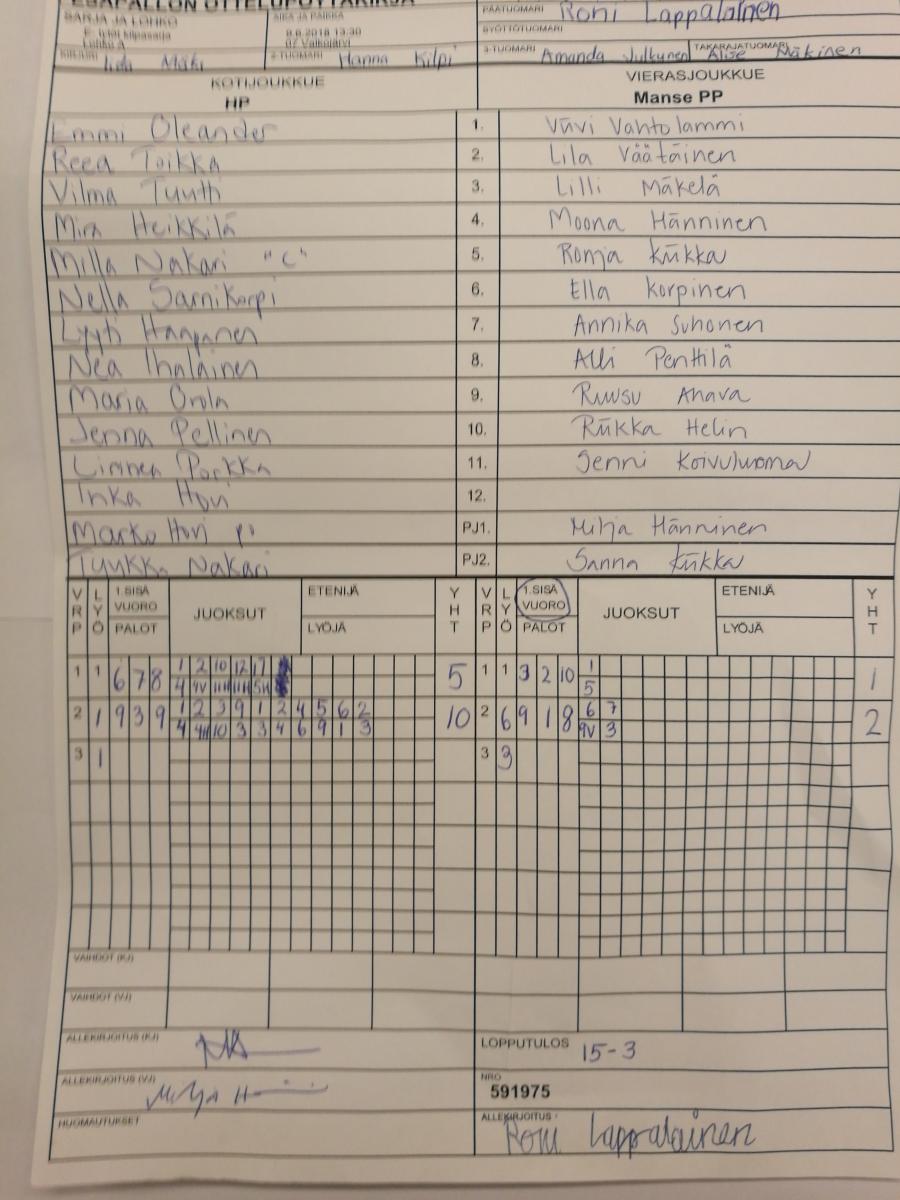 ESÄPALLON OTTELUPÖYTÄKIRJA
SARJA JA LOHKO
AIKA JA PAIKKA
PÄÄTUOMARI Roni Lappalainen
SYÖTTÖTUOMARI
Lohko A
8.6.2018 13.30
07 Valkojärvi
KIRJURI Iida Mäki
2-TUOMARI Hanna Kilpi
3-TUOMARI Amanda Julkunen
TAKARAJATUOMARI Alise Mäkinen
KOTIJOUKKUE
VIERASJOUKKUE
HP
Manse PP
Emmi Oleander 1. Viivi Vahtolammi
Reea Toikka 2. Lila Väätäinen
Vilma Tuuth 3. Lilli Mäkelä
Mira Heikkilä 4. Moona Hänninen
Milla Nakari "C" 5. Ronja Kiikka
Nella Sarnikorpi 6. Ella Korpinen
Lyyti Haapanen 7. Annika Suhonen
Nea Ihalainen 8. Alli Penttilä
Maria Orola 9. Ruusu Anava
Jenna Pellinen 10. Riikka Helin
Linnea Porkka 11. Jenni Koivuluoma
Inka Hovi 12.
Marko Hovi PJ1. Milja Hänninen
Tuukka Nakari PJ2. Sanna Kiikka
VRP LYÖ 1.SISÄ VUORO PALOT JUOKSUT ETENIJÄ LYÖJÄ YHT VRP LYÖ 1.SISÄ VUORO PALOT JUOKSUT ETENIJÄ LYÖJÄ YHT
1 1 6 7 8 1 2 10 12 5 1 1 3 2 10 1 1
4 4V 5
2 1 9 3 9 1 2 3 9 1 2 4 5 6 2 10 2 6 9 1 8 6 7 2
4 4H 10 3 3 4 6 9 1 3 9V 3
3 1 3 3
VAIHDOT (KJ)
VAIHDOT (VJ)
ALLEKIRJOITUS (KJ)
LOPPUTULOS 15-3
ALLEKIRJOITUS (VJ)
NRO
591975
HUOMAUTUKSET
ALLEKIRJOITUS
Roni Lappalainen